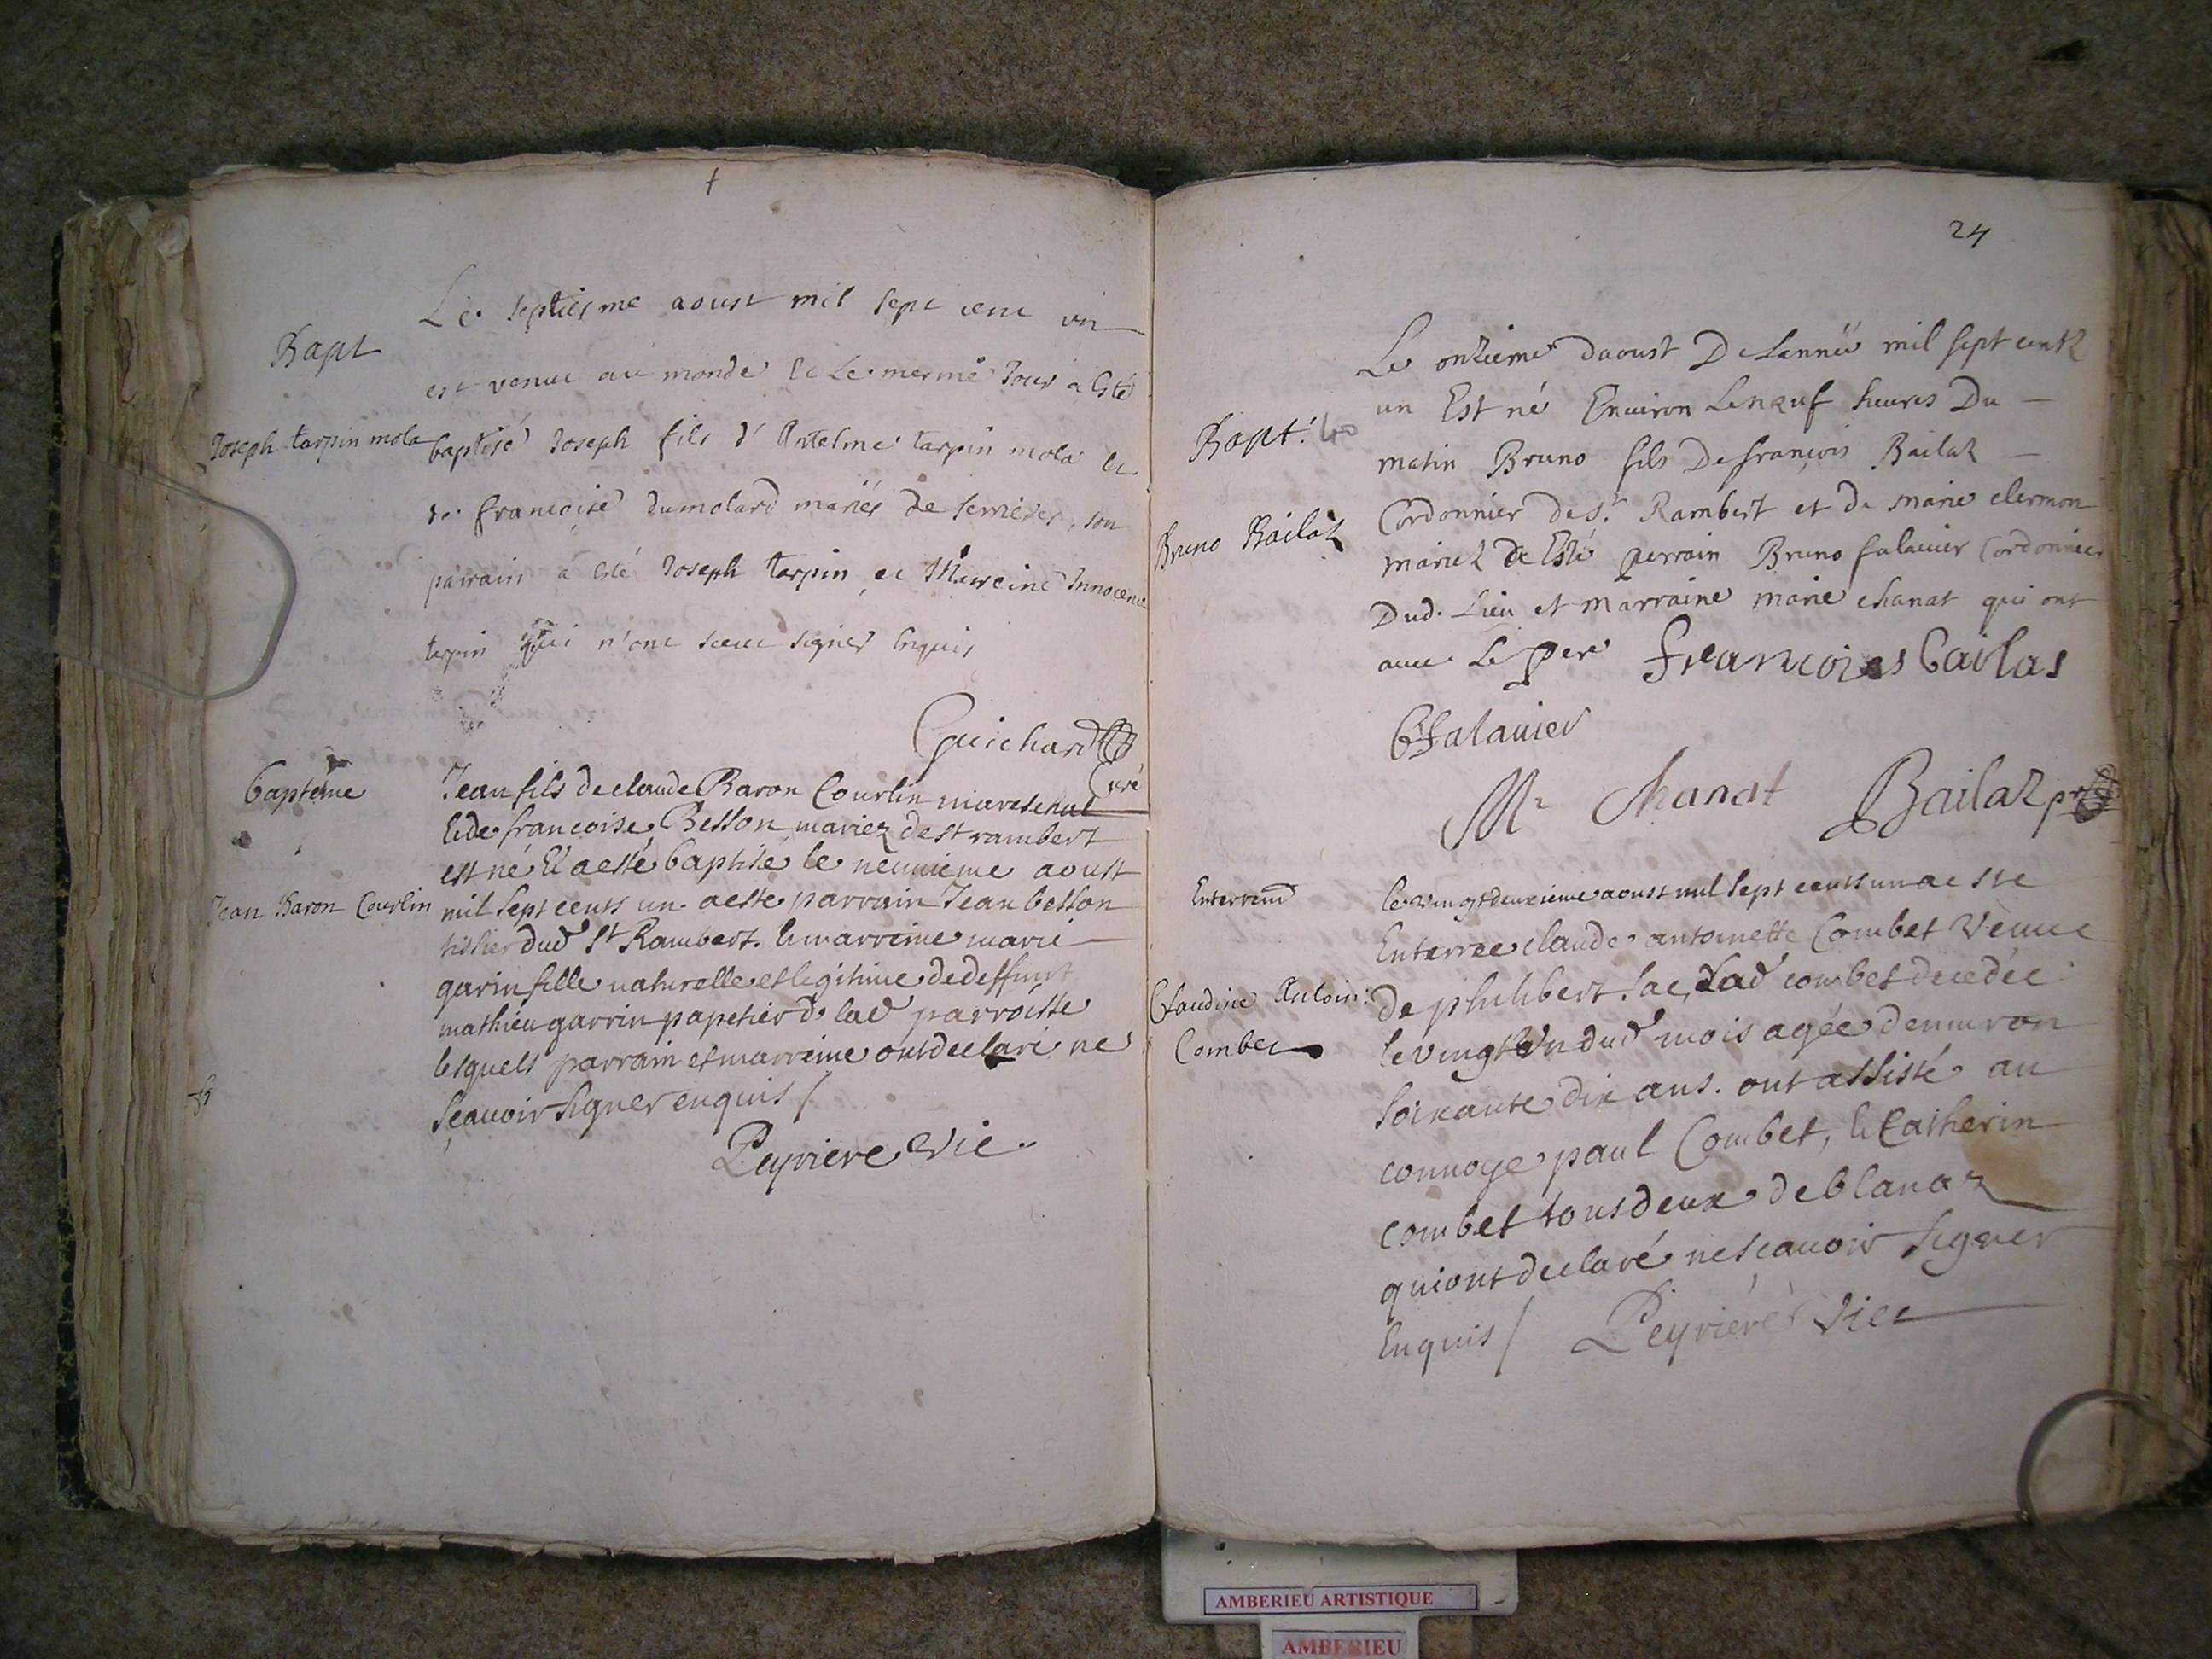 Bapt
Le septiesme aoust mil sept cent un
est venu au monde et le mesme Jour a esté
Joseph tarpin mola
baptisé Joseph fils d'Antelme tarpin mola et
de francoise dumolard mariés de serrieres, son
parrain a esté Joseph tarpin, et Mareine Innocence
tarpin qui n'ont sceut signer Enquis
Guichard
Curé
baptême
Jean fils de claude Baron Courlin mareschal
et de francoise Besson mariez de st rambert
est né et a esté baptisé le neuvieme aoust
Jean Baron Courlin
mil sept cents un. a esté parrain Jean besson
tissier dud St Rambert. et marreine marie
garin fille naturelle et legitime de deffunt
mathieu garrin papetier de lad parroisse
lesquels parrain et marreine ont declaré ne
scavoir signer enquis /
Peyriere Vic.
24
Bapt: 40
Le onzieme daoust De Lannée mil sept centz
un Est né Environ Le neuf heures Du
matin Bruno fils De françois Bailaz
Bruno Bailaz
Cordonnier de St. Rambert et de marie clermon
mariez et Esté perrain Bruno falavier Cordonnier
Dud. Lieu et marraine marie chanat qui ont
avec Le pere francoies bailas
B falavier
Mr Chanat Bailaz
Enterremt
le vingt deuxieme aoust mil sept cents un a este
Enterrée claude antoinette Combet veuve
Claudine Antoin:
Combet
de philibert. lad combet decedée
le vingt Un dud mois agée denviron
soixante dix ans. ont assisté au
convoye paul Combet, et Catherin
combet tous deux de blanaz
qui ont declaré ne scavoir signer
Enquis / Peyriere Vic
AMBERIEU ARTISTIQUE
AMBERIEU